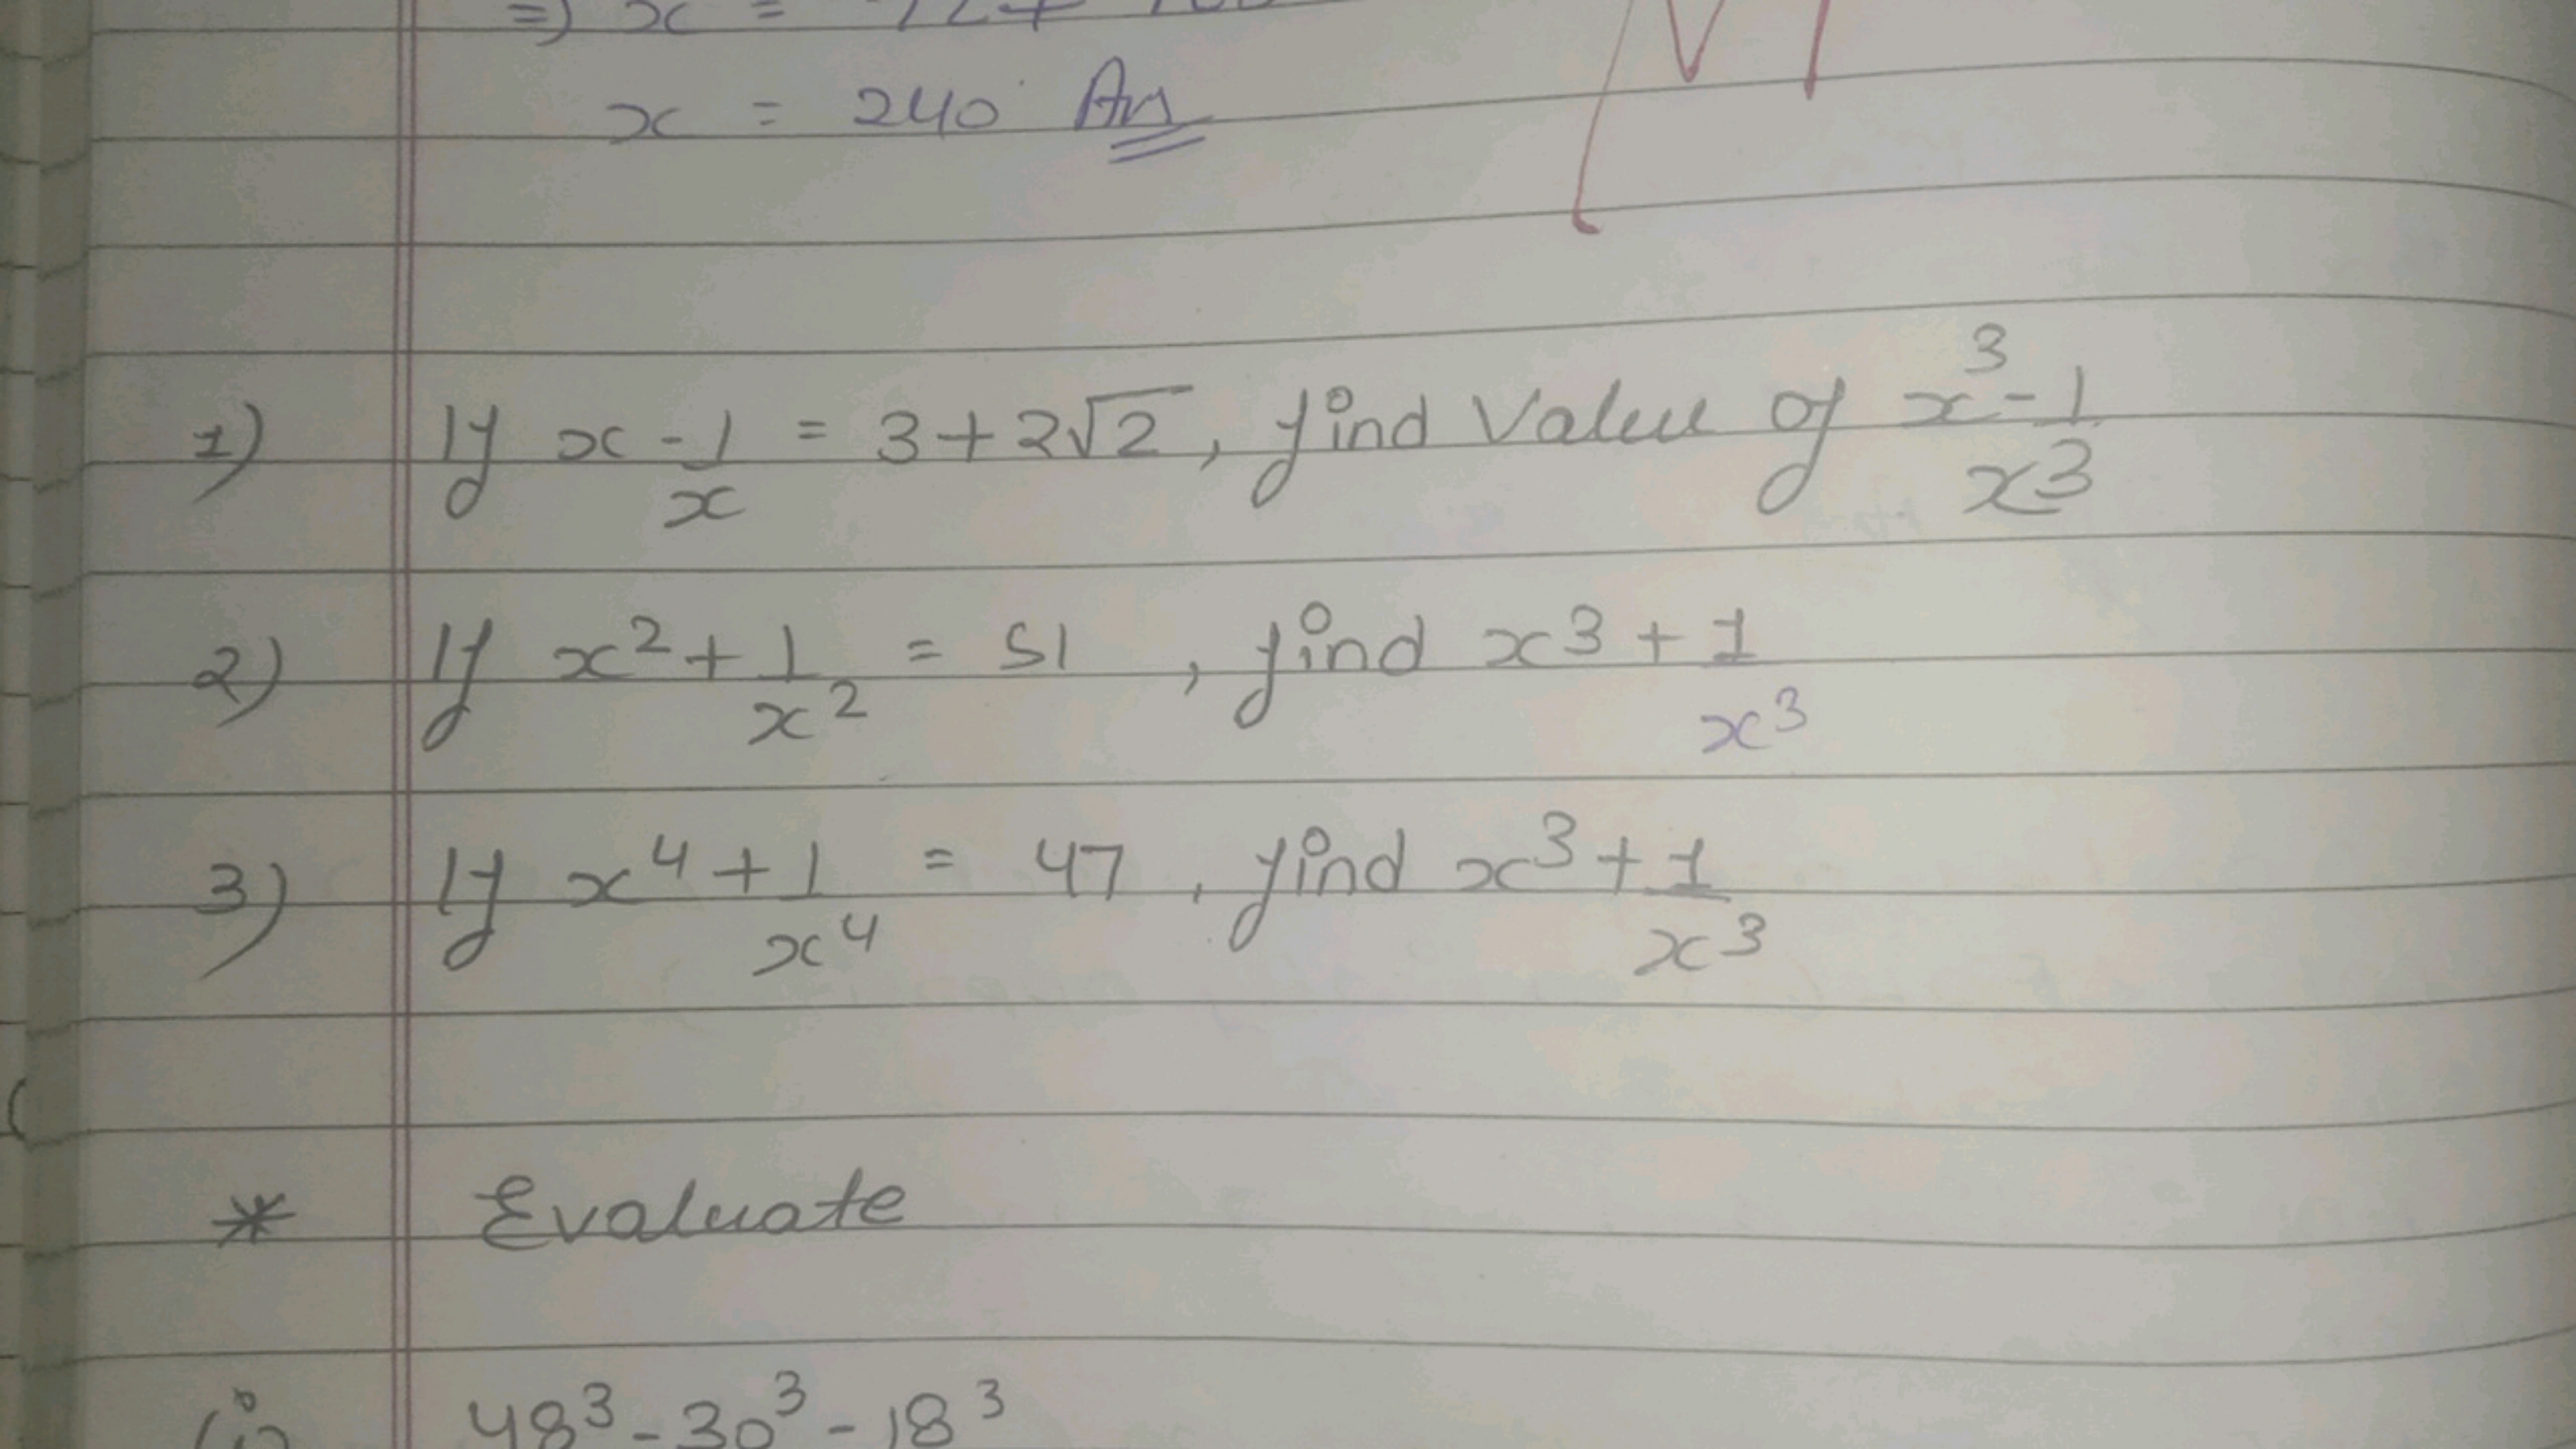 x = 240 Ans
1) If x - 1/x = 3+2√2, find Value of x³ - 1/x³
2) If x² + 1/x² = 51, find x³ + 1/x³
3) If x⁴ + 1/x⁴ = 47, find x³ + 1/x³
* Evaluate
(i) 48³ - 30³ - 18³